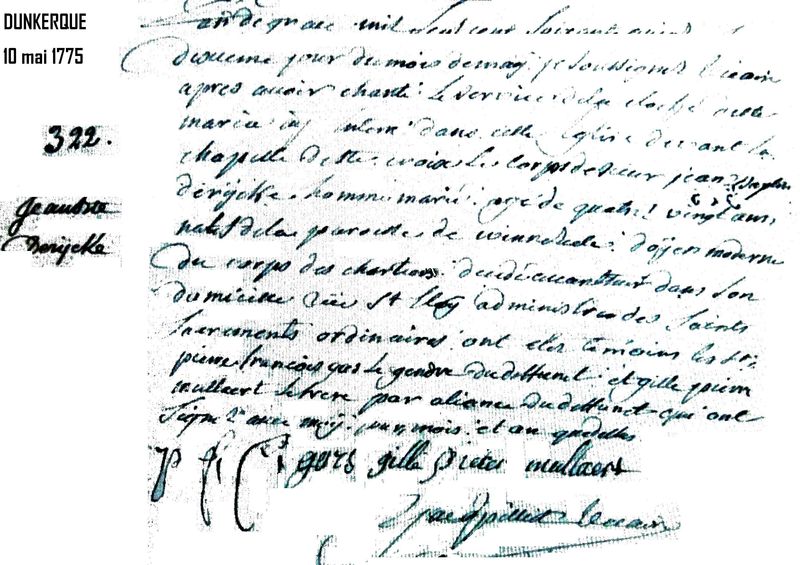 DUNKERQUE
10 mai 1775
322.
jean bte
Derijcke
an de grace mil sept cent soixante
dixieme jour du mois de may je soussigné vicaire
apres avoir chanté le service de la cloche dite
maria ay dans cette Eglise devant la
chapelle de Ste croix Le Corps de sieur jean Baptiste
derijcke homme marié age de quatre vingt ans
natif de la paroisse de winnezeele doijen moderne
du corps des chartiers decedé avanthier dans son
domicille rüe St Eloy administré des saints
sacrements ordinaires ont etés temoins les srs
pierre françois gars le gendre du deffunct et gille pierre
mullaert le frere par aliance du deffunct qui ont
signé avec moy jour mois et an que dessus
p f C gars gille pieter mullaert